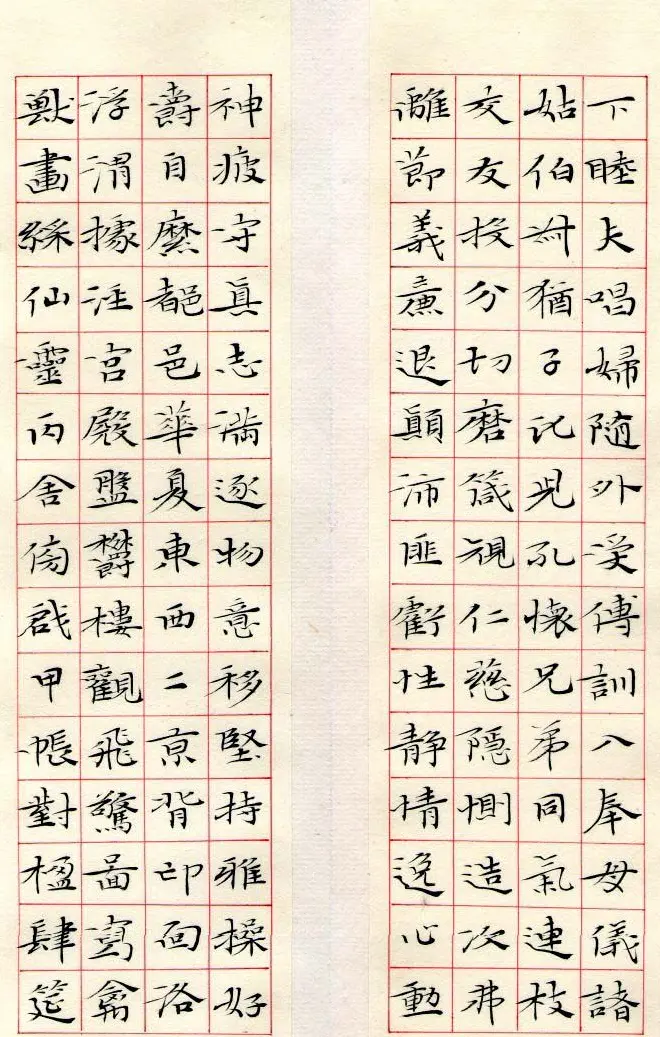 下睦夫唱婦随外受傅訓入奉母儀諸
姑伯叔猶子比兒孔懷兄弟同氣連枝
交友投分切磨箴規仁慈隱惻造次弗
離節義廉退顛沛匪虧性静情逸心動
神疲守真志滿逐物意移堅持雅操好
爵自縻都邑華夏東西二京背邙面洛
浮渭據涇宮殿盤欝樓觀飛驚啚寫禽
獸畫綵仙靈丙舍傍啟甲帳對楹肆筵